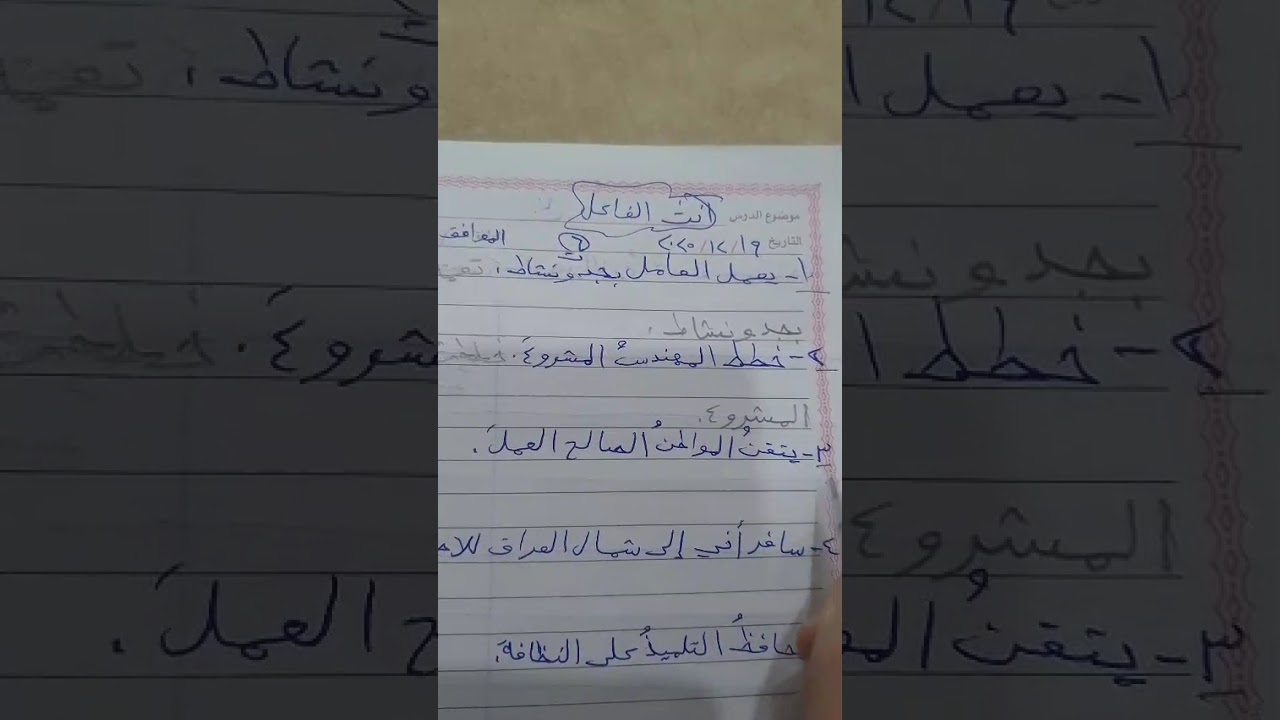 موضوع الدرس أنتَ الفاعل
التاريخ ٢٠٢٠/١٢/١٩ الموافق
١- يعمل العامل بجد ونشاط ،
بجد ونشاط .
٢- خطط المهندسُ المشروع .
المشروع .
٣- يتقنُ المواطنُ الصالح العملَ .
٤- سافر أخي إلى شمال العراق
حافظُ التلميذُ على النظافة .